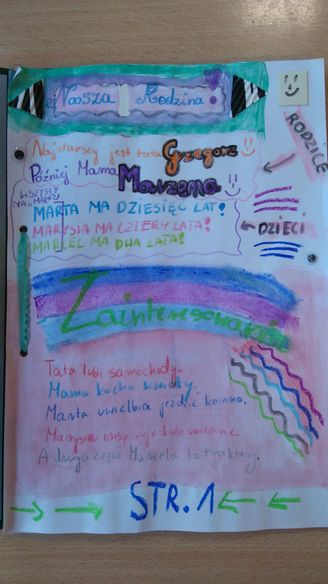 Nasza Rodzina
Najstarszy jest tata Grzegorz
RODZICE
Później Mama Marzena
WSZYSCY NA „M”
MARTA MA DZIESIĘĆ LAT!
MARYSIA MA CZTERY LATA!
DZIECI
MARCEL MA DWA LATA!
Zainteresowania
Tata lubi samochody.
Mama kocha kwiaty.
Marta uwielbia jeździć konno.
Marysię inspiruje kolorowanie
A druga część Marcela to traktory.
STR. 1